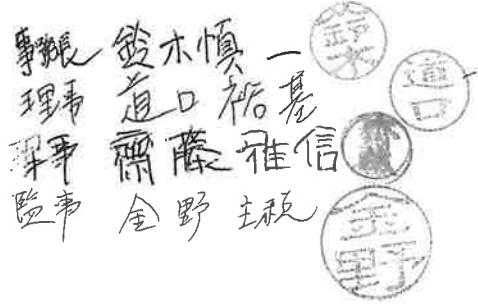 事務長 鈴木慎一 鈴木
理事 道口裕基 道口
理事 齋藤雅信
監事 金野 金野